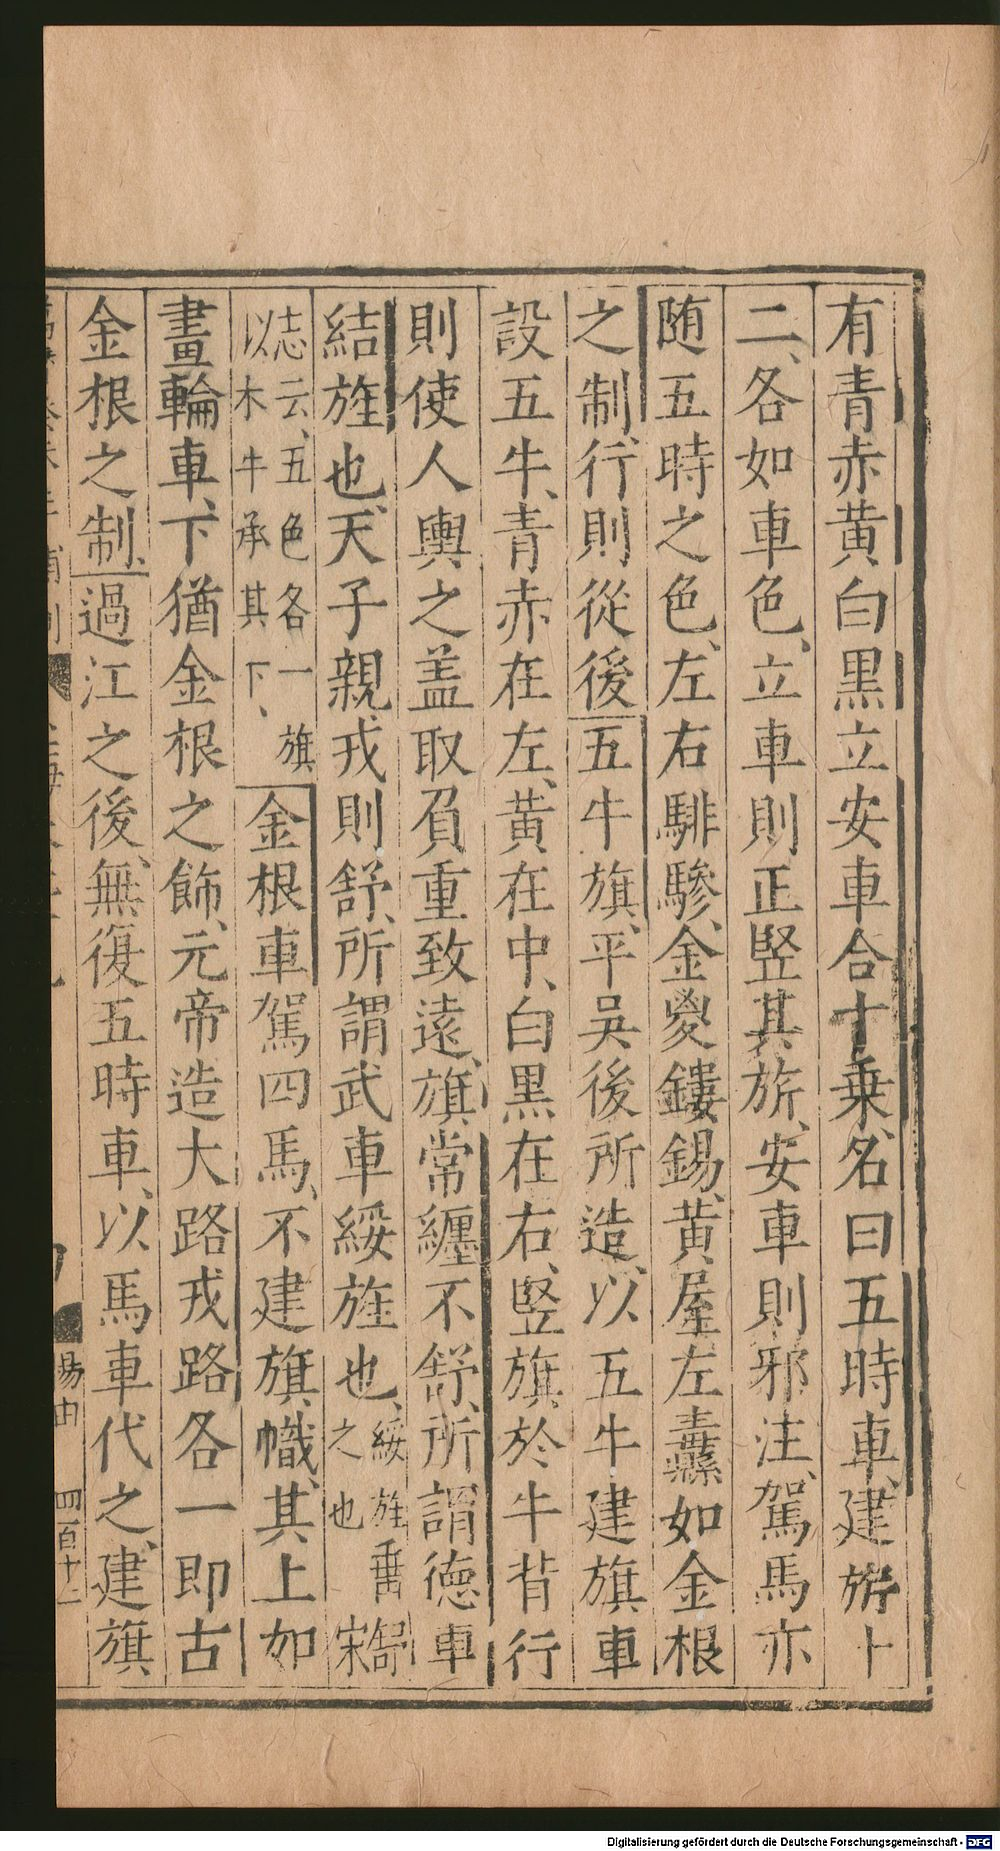 有青赤黄白黑立安車合十乗、名曰五時車、建旂十
二、各如車色、立車則正竪其旂、安車則邪注、駕馬亦
随五時之色、左右騑驂、金㚇鏤錫、黄屋、左纛如金根
之制、行則從後五牛旗、平吳後所造、以五牛建旗車
設五牛、青赤在左、黄在中、白黑在右、竪旗於牛背行
則使人輿之盖取負重致遠、旗常纏不舒、所謂德車
結旌也、天子親戎則舒、所謂武車綏旌也、綏旌垂舒之也宋
志云、五色各一旗以木牛承其下、金根車駕四馬、不建旗幟、其上如
畫輪車、下猶金根之飾、元帝造大路戎路各一即古
金根之制、過江之後、無復五時車、以馬車代之、建旗
易由
四百十二
Digitalisierung gefördert durch die Deutsche Forschungsgemeinschaft - DFG